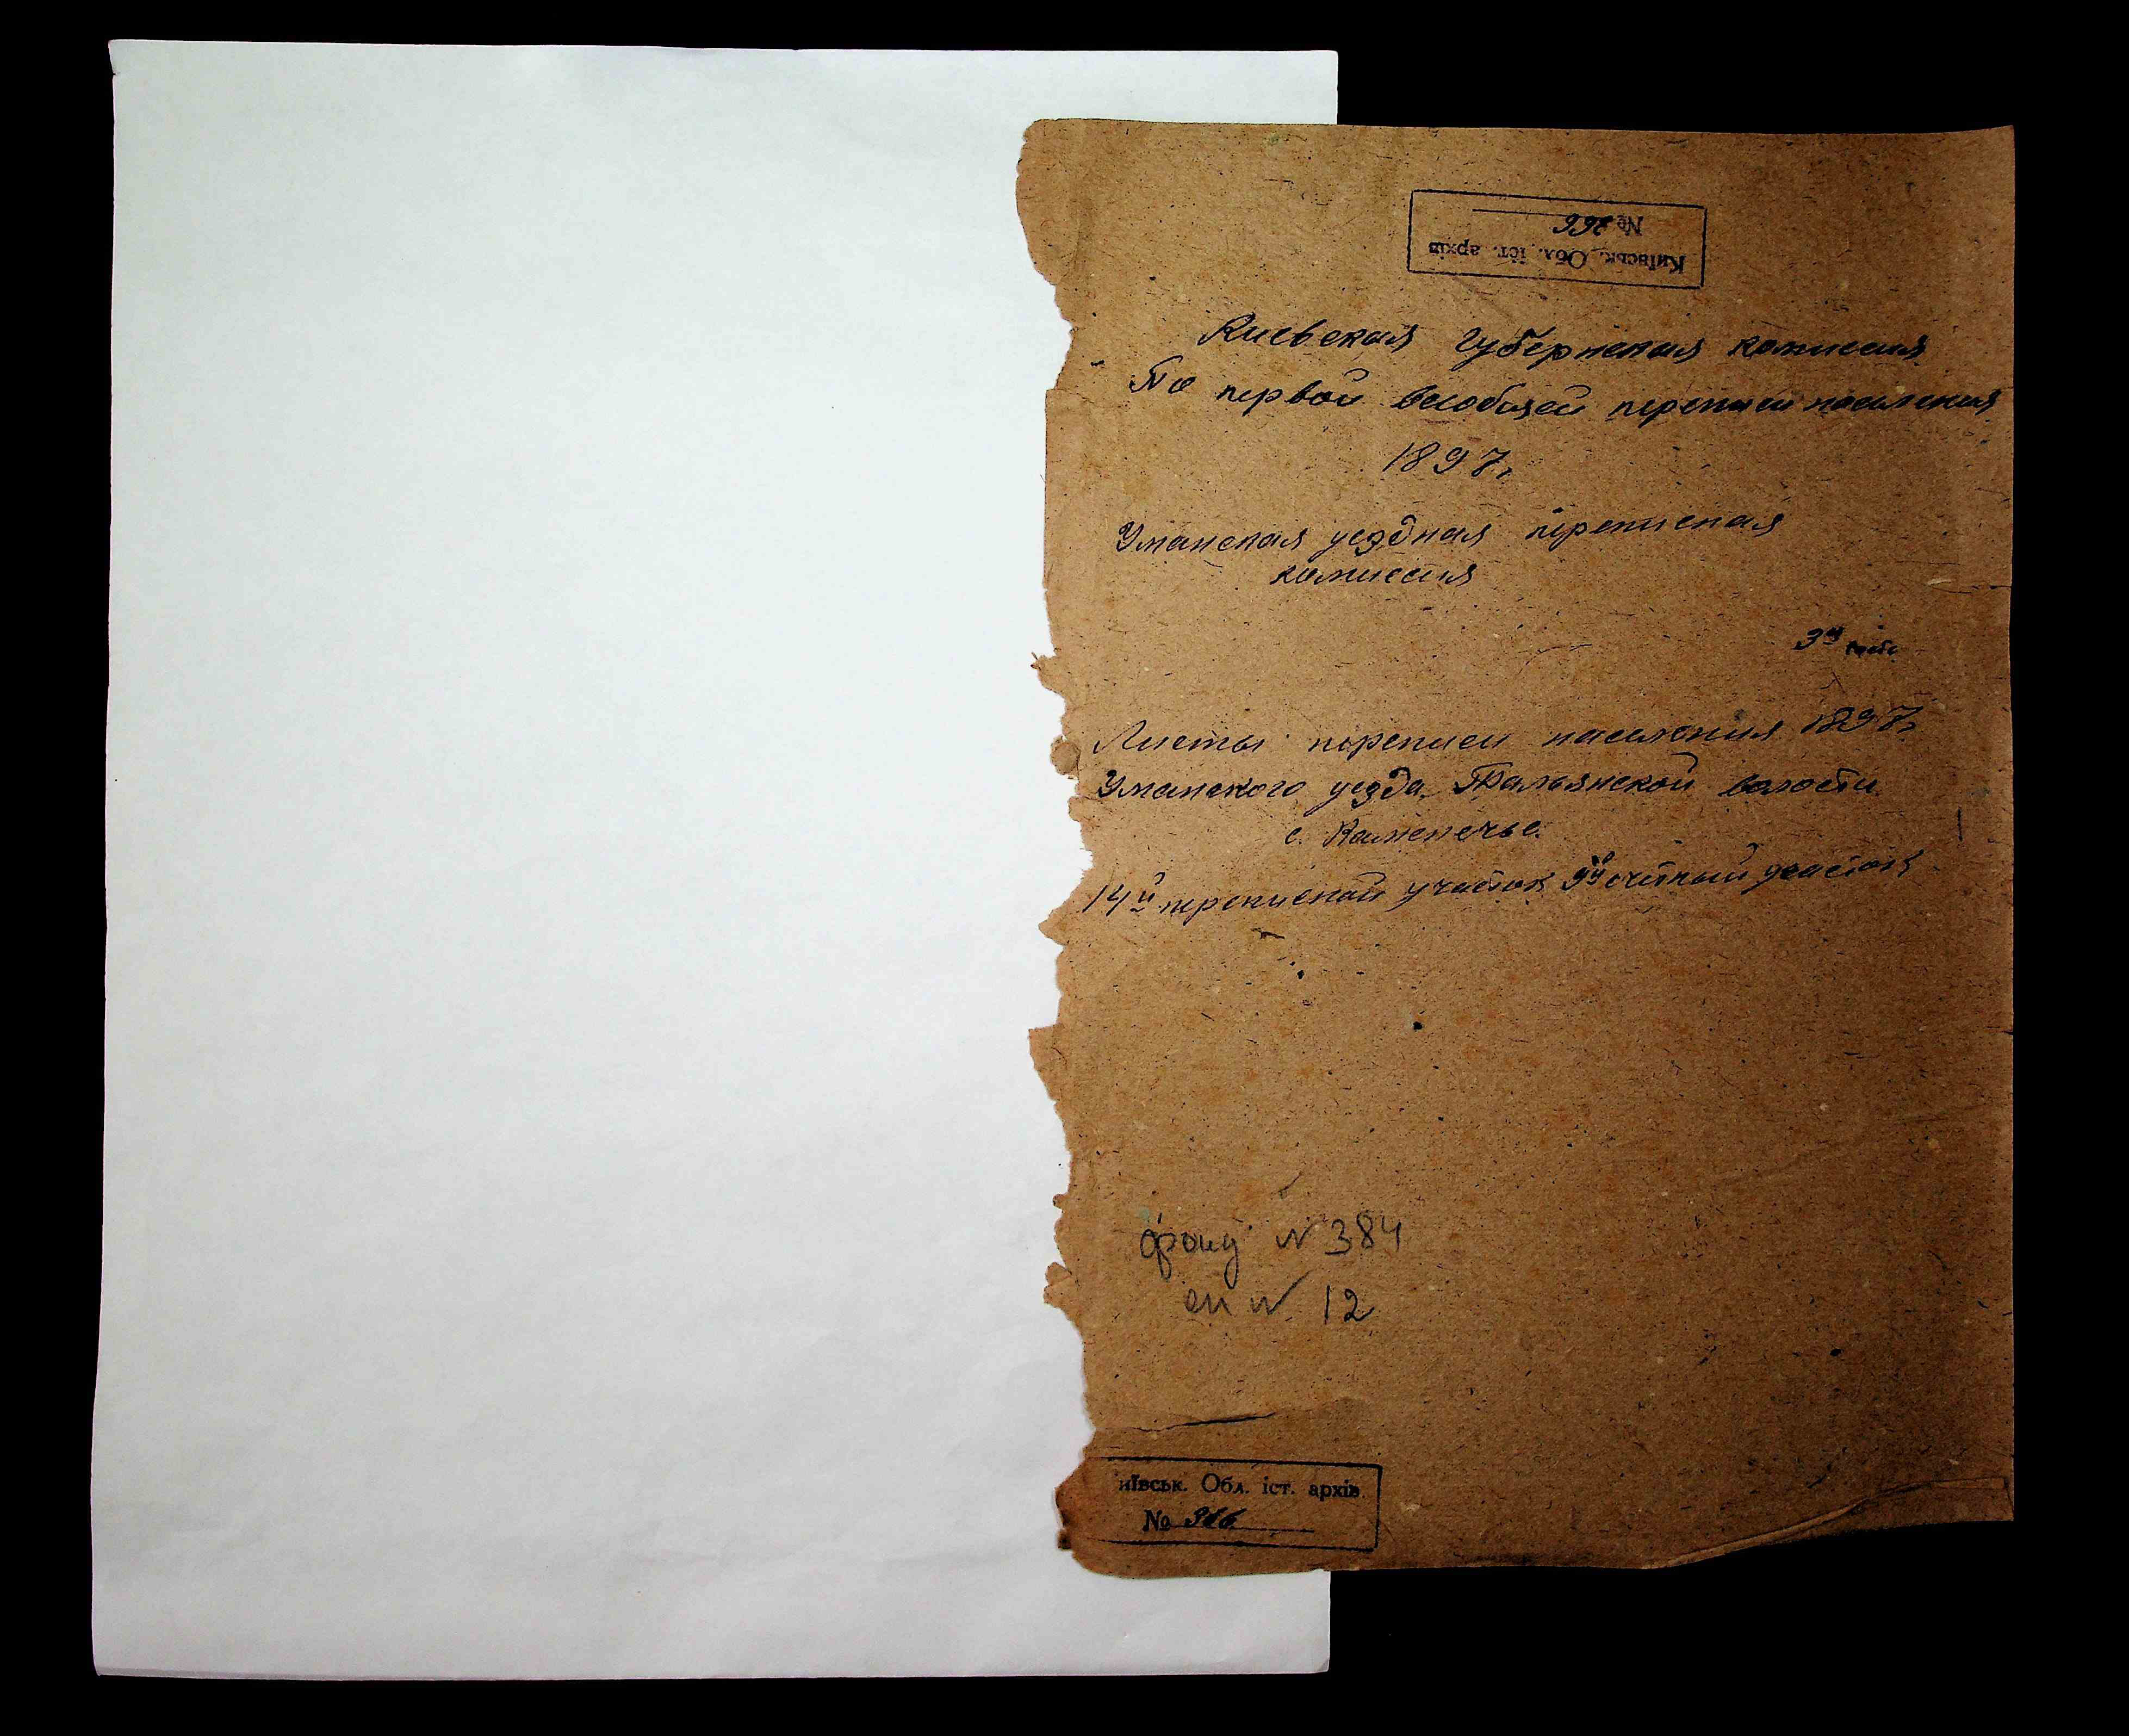 Київськ. Обл. іст. архів
№ 366
Киевская Губернская комиссия
По первой всеобщей переписи населения
1897г
Уманская уездная переписная
комиссия
3й
Листы переписи населения 1897г
Уманского уезда Тальянской волости
с. Каменечье.
14й переписной участок 9й счетный участок
фонд N 384
оп N 12
иївськ. Обл. іст. архів
№ 366